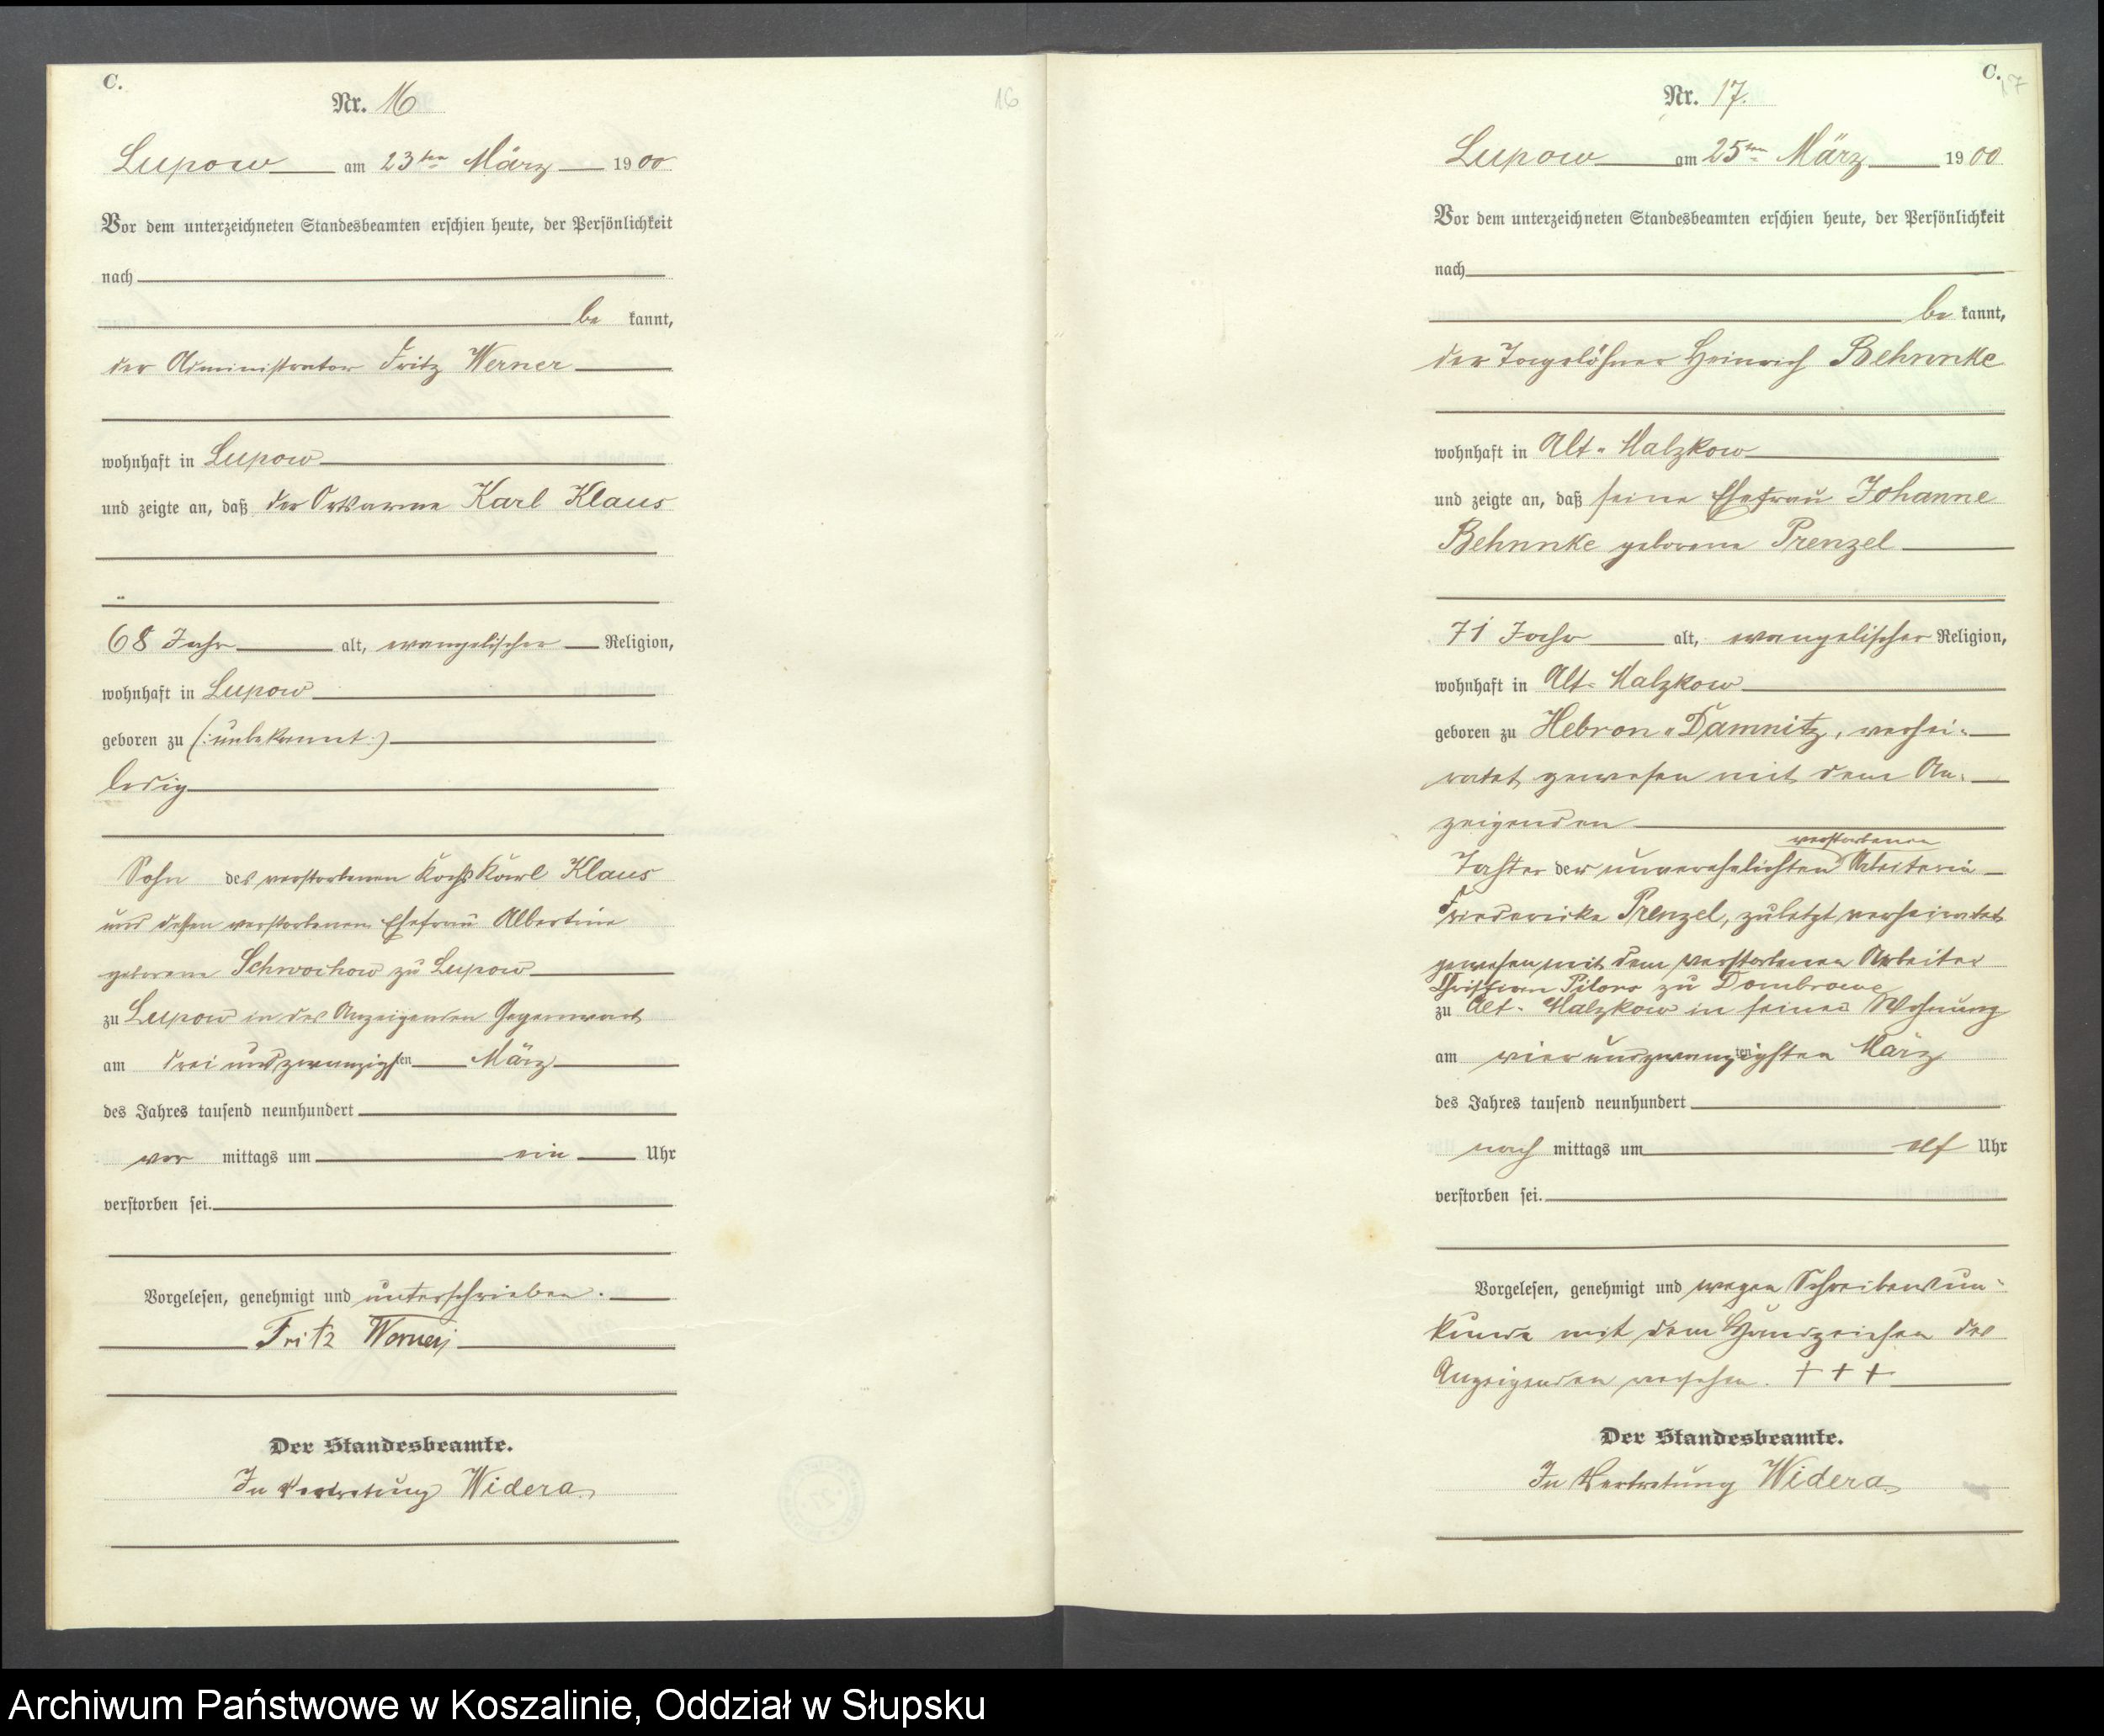 C.
Nr. 16
16
Lupow am 23ten März 1900
Vor dem unterzeichneten Standesbeamten erschien heute, der Persönlichkeit
nach
be kannt,
der Administrator Fritz Werner
wohnhaft in Lupow
und zeigte an, daß der Ortsarme Karl Klaus
68 Jahr alt, evangelischer Religion,
wohnhaft in Lupow
geboren zu (: unbekannt :)
ledig
Sohn des verstorbenen Kochs Karl Klaus
und dessen verstorbenen Ehefrau Albertine
geborene Schwochow zu Lupow
zu Lupow in des Anzeigenden Gegenwart
am drei und zwanzigsten März
des Jahres tausend neunhundert
vor mittags um ein Uhr
verstorben sei.
Vorgelesen, genehmigt und unterschrieben.
Fritz Werner
Der Standesbeamte.
In Vertretung Widera
C.
17
Nr. 17.
Lupow am 25ten März 1900
Vor dem unterzeichneten Standesbeamten erschien heute, der Persönlichkeit
nach
be kannt,
der Tagelöhner Heinrich Behnnke
wohnhaft in Alt-Malzkow
und zeigte an, daß seine Ehefrau Johanne
Behnnke geborene Prenzel
71 Jahr alt, evangelischer Religion,
wohnhaft in Alt-Malzkow
geboren zu Hebron-Damnitz, verhei-
ratet gewesen mit dem An-
zeigenden
verstorbenen
Tochter der unverehelichten Arbeiterin
Friederike Prenzel, zuletzt verheiratet
gewesen mit dem verstorbenen Arbeiter
Christian zu Dombrowe
zu Alt-Malzkow in seiner Wohnung
am vier und zwanzigsten März
des Jahres tausend neunhundert
nach mittags um elf Uhr
verstorben sei.
Vorgelesen, genehmigt und wegen Schreibensun-
kunde mit dem Handzeichen des
Anzeigenden versehen. + + +
Der Standesbeamte.
In Vertretung Widera
Archiwum Państwowe w Koszalinie, Oddział w Słupsku